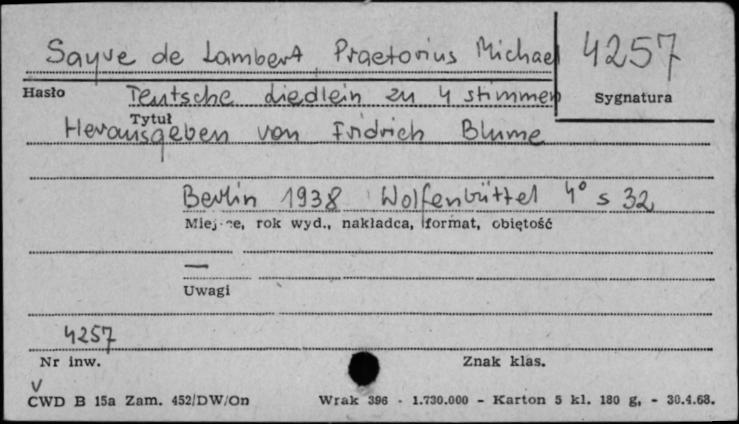 Sayve de Lambert, Praetorius Michael
4257
Hasło
Teutsche Liedlein zu 4 stimmen
Sygnatura
Tytuł
Herausgeben von Fridrich Blume
Berlin 1938 Wolfenbüttel 4° s 32
Miejsce, rok wyd., nakładca, format, objętość
—
Uwagi
4257
Nr inw.
Znak klas.
V
CWD B 15a Zam. 452/DW/On
Wrak 396 - 1.730.000 - Karton 5 kl. 180 g. - 30.4.68.